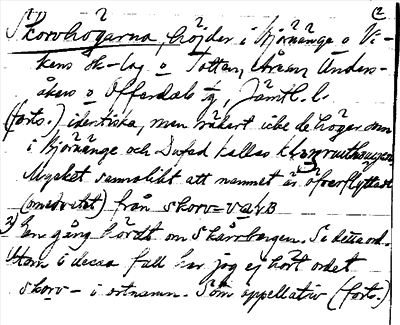 1) (2
Skorvhögarna, höjder i Björnänge o Vi-
kens sk-lag o Totten, Åreen, Unders-
åkers o Offerdals sn, Jämtl. l.
(forts.) identiska, men säkert icke de högar som
i Björnänge och Dufed kallas
Mycket sannolikt att namnet är öfverflyttat
(omedvetet) från skorv = varB
2) en gång hördt om Skårvbergen. Se detta ord.
Utom i dessa fall har jag ej hört ordet
skorv- i ortnamn. Som appellativ (forts.)